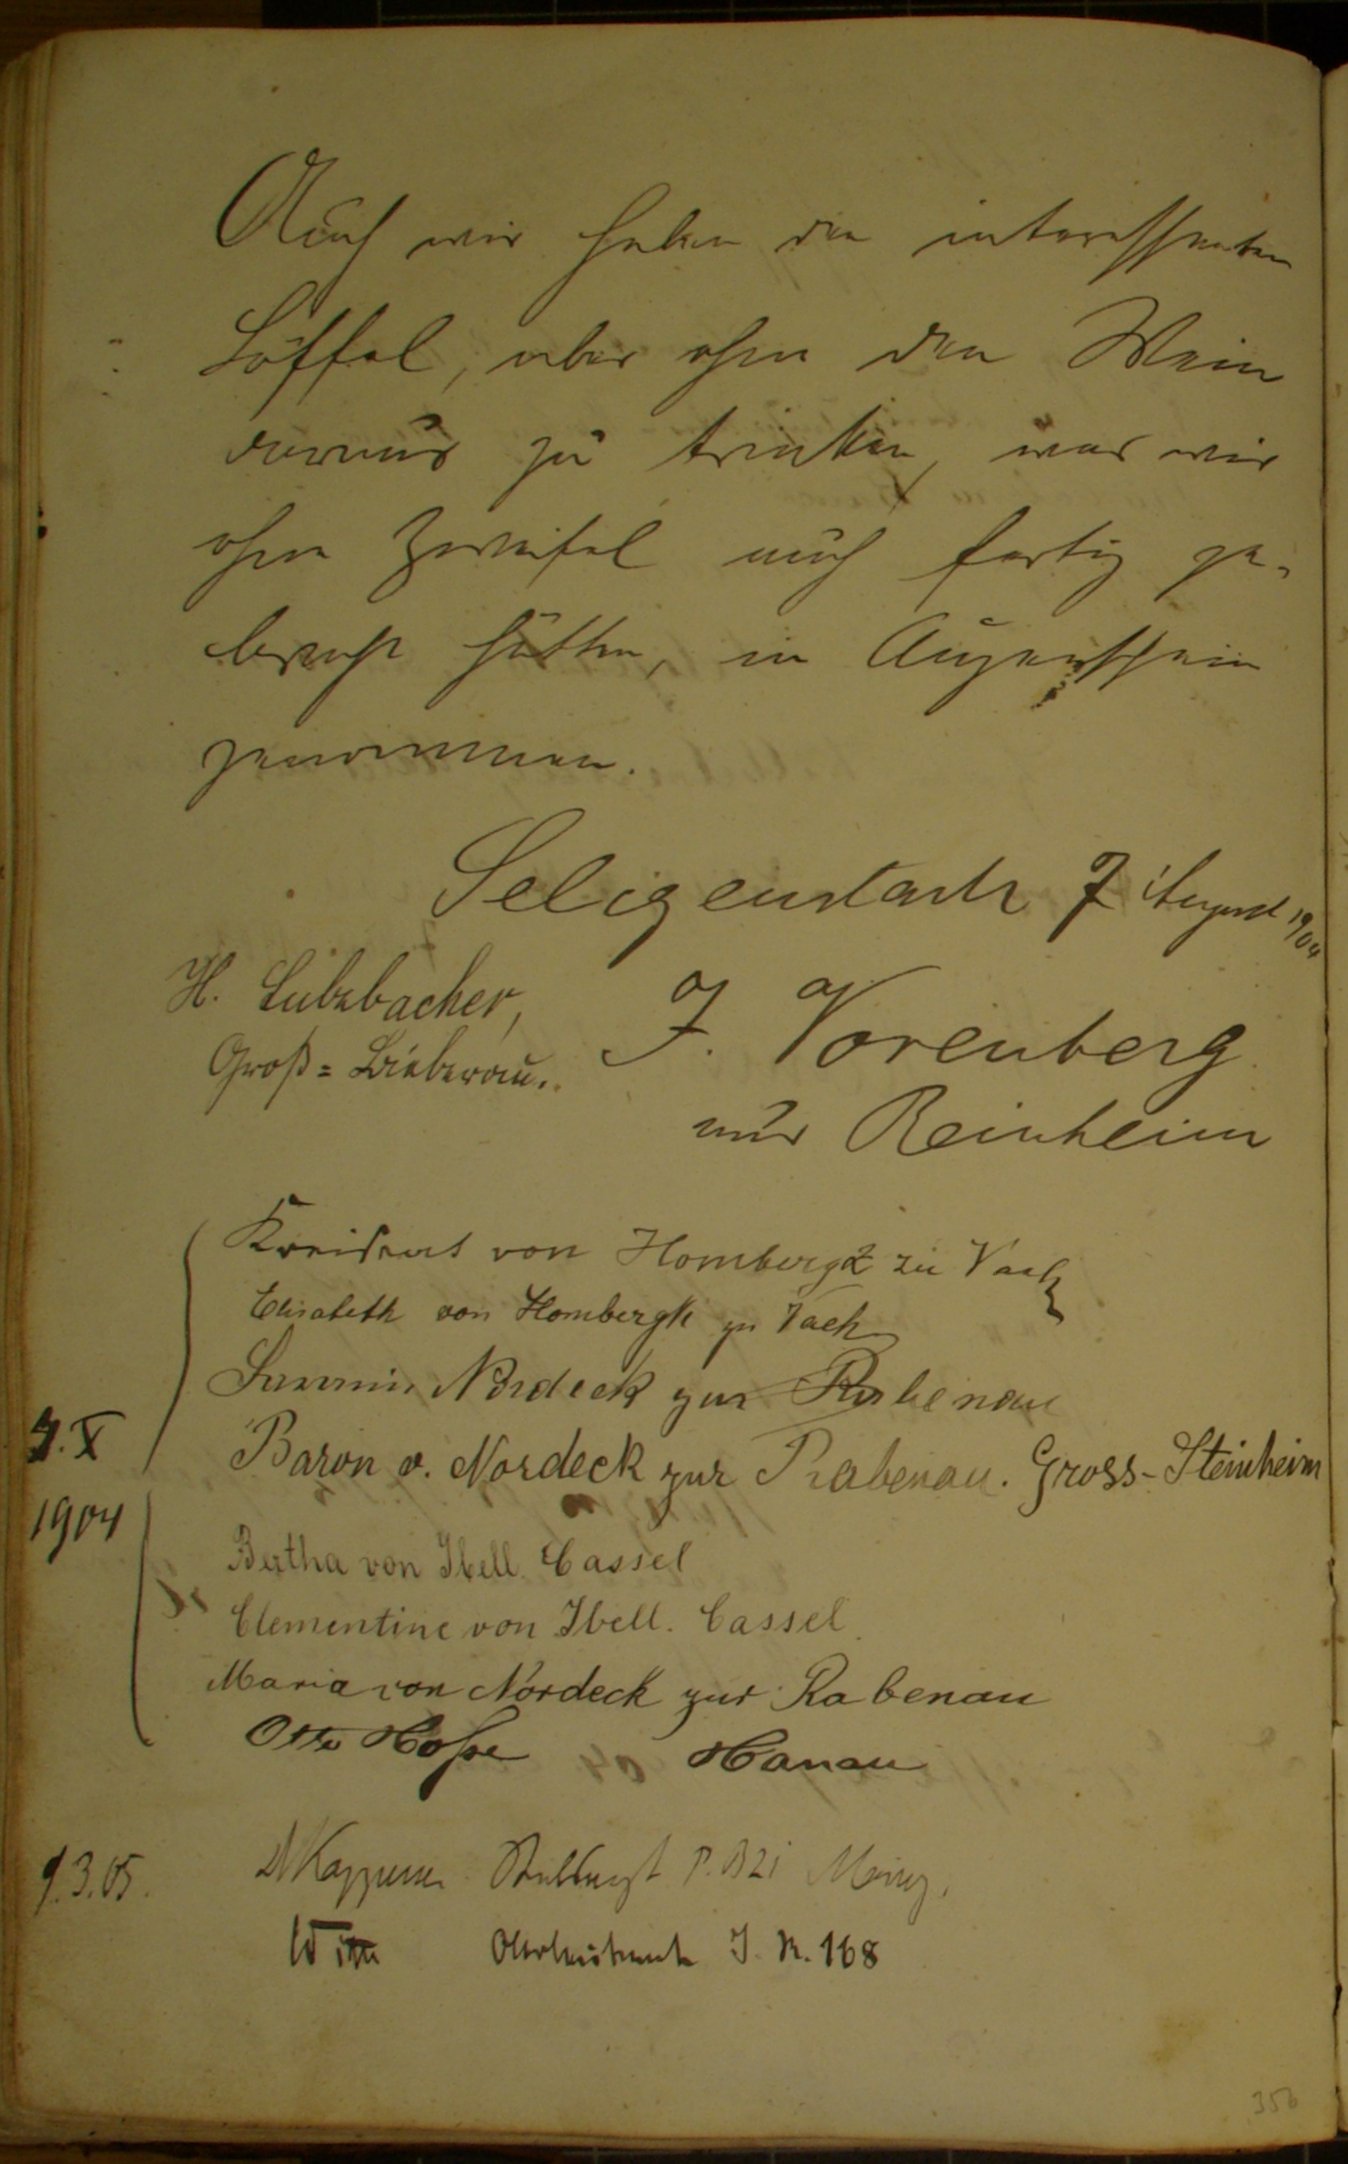 Auch wir haben den interessanten
Löffel, aber ohne den Wein
daraus zu trinken, was wir
ohne Zweifel auch fertig ge-
bracht hätten, in Augenschein
genommen.
Seligenstadt 7 August 1904
H. Lubzbacher, J. Vorenberg
Groß=Bieberau. aus Reinheim
Kreisrat von Hombergk zu Vach
Elisabeth von Hombergk zu Vach
Nordeck zur Rabenau
7. X Baron v. Nordeck zur Rabenau. Gross-Steinheim
1904
Bertha von Ibell. Cassel
Clementine von Ibell. Cassel
Maria von Nordeck zur Rabenau
Otto Hosse Hanau
9.3.05. Stabsarzt Mainz.
Oberleutnant I. R. 168
356